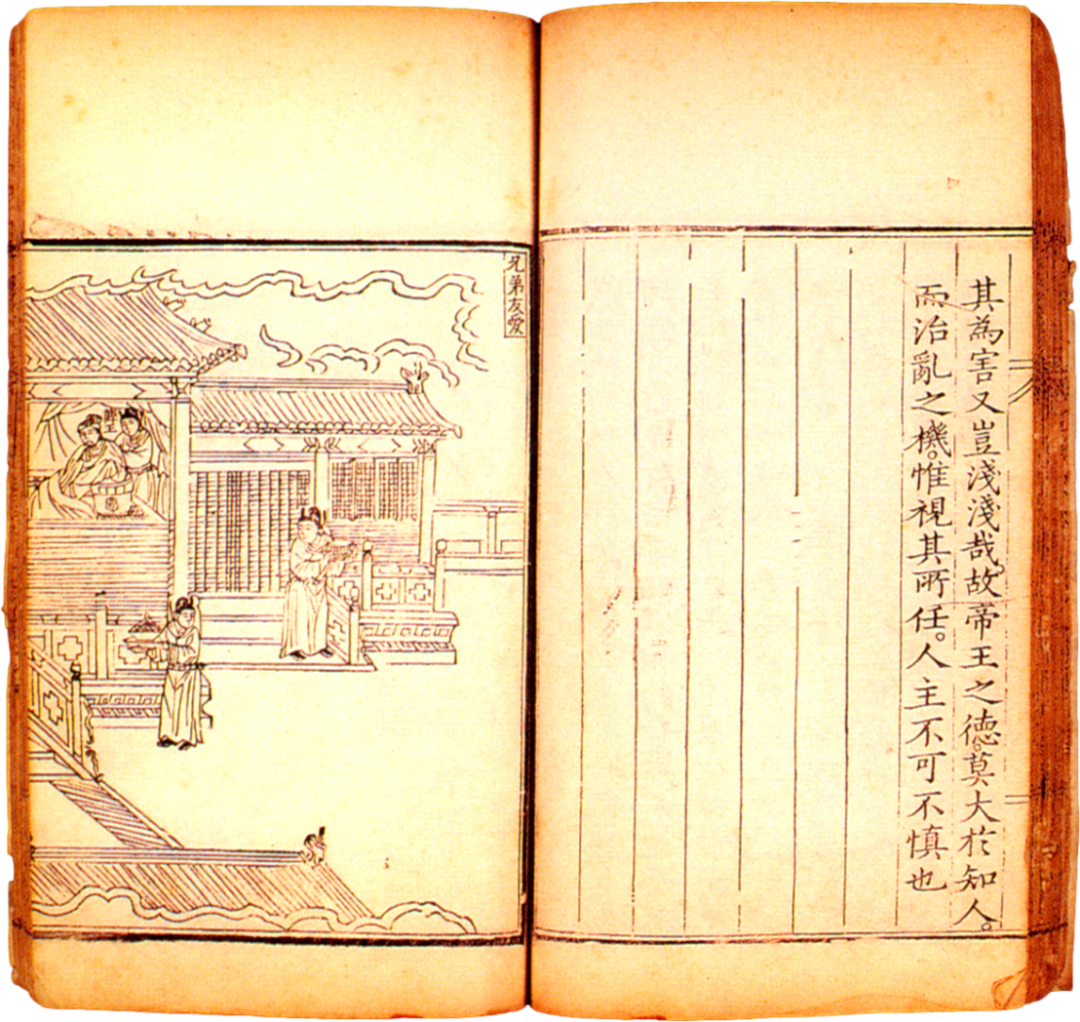 其為害又豈淺淺哉。故帝王之德。莫大於知人。
而治亂之機。惟視其所任。人主不可不慎也
兄弟友愛